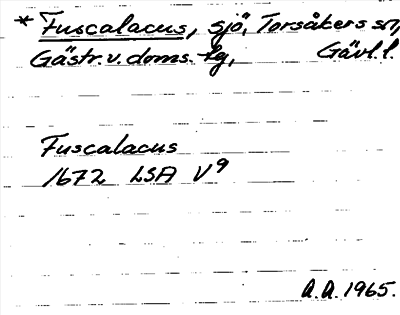 * Fuscalacus, sjö, Torsåkers sn,
Gästr. v. doms.-tg, Gävl. l.
Fuscalacus
1672 LSA V9
A.A. 1965.